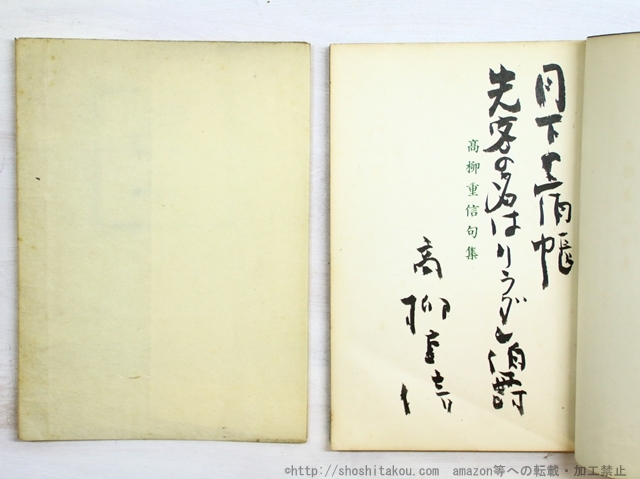 月下の宿帳
先客の名はリラダン伯爵
高柳重信句集
高柳重信
©http://shoshitakou.com　amazon等への転載・加工禁止